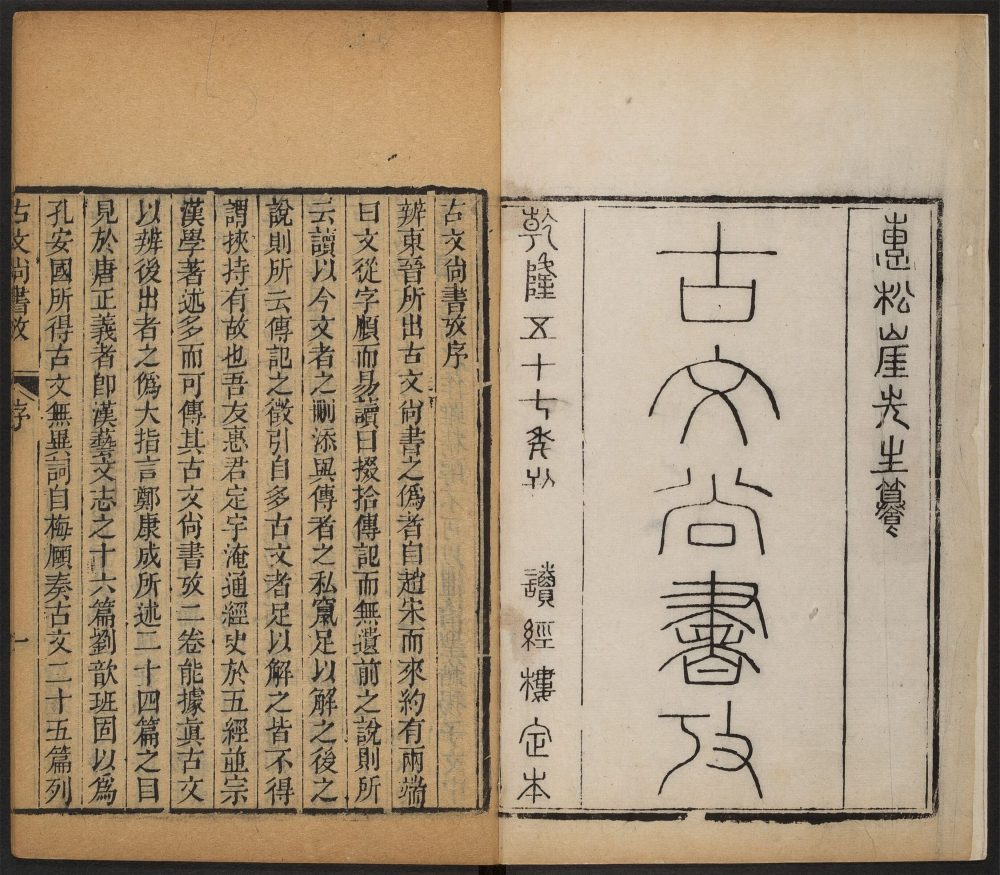 惠松崖先生纂
古文尚書攷
乾隆五十七年刊 讀經樓定本
古文尙書攷序
辨東晉所出古文尙書之僞者自趙宋而來約有兩端
曰文從字順而易讀曰掇拾傳記而無遺前之說則所
云讀以今文者之刪添與傳者之私竄足以解之後之
說則所云傳記之徵引自多古文者足以解之皆不得
謂挾持有故也吾友惠君定宇淹通經史於五經並宗
漢學著述多而可傳其古文尙書攷二卷能據眞古文
以辨後出者之僞大指言鄭康成所述二十四篇之目
見於唐正義者卽漢藝文志之十六篇劉歆班固以爲
孔安國所得古文無異詞自梅頤奏古文二十五篇列
古文尙書攷 序 一